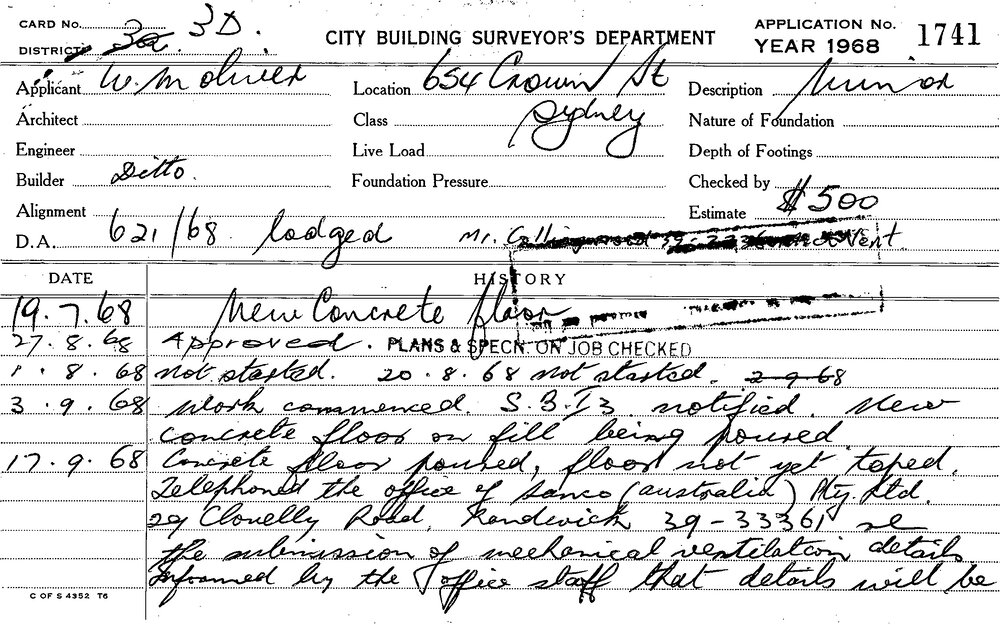 CARD No. 3D.
DISTRICT
CITY BUILDING SURVEYOR'S DEPARTMENT
APPLICATION No. 1741
YEAR 1968
Applicant W. M Oliver
Location 654 Crown St
Description Minor
Architect
Class Sydney
Nature of Foundation
Engineer
Live Load
Depth of Footings
Builder Ditto.
Foundation Pressure
Checked by
Alignment
Estimate $500
D.A. 621/68 lodged Mr. Vent
DATE HISTORY
19.7.68 New Concrete floor
27.8.68 Approved. PLANS & SPECN. ON JOB CHECKED
1.8.68 Not started. 20.8.68 Not started. 2-9-68
3.9.68 Work commenced. S.B.I 3. notified. New
concrete floor on fill being poured
17.9.68 Concrete floor poured, floor not yet toped.
Telephoned the office of Sanco (Australia) Pty. Ltd.
29 Clovelly Road, Randwick 39-33361 re
the submission of mechanical ventilation details
informed by the office staff that details will be
C OF S 4352 T6